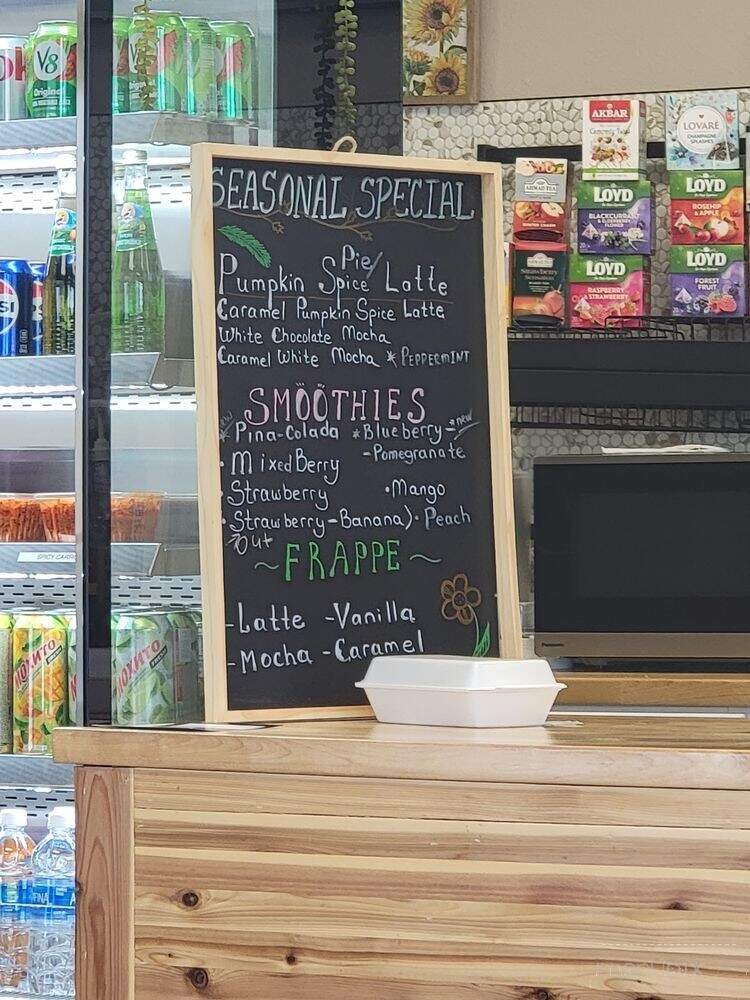 V8
Original
SEASONAL SPECIAL
Pie/
Pumpkin Spice Latte
Caramel Pumpkin Spice Latte
White Chocolate Mocha
Caramel White Mocha *PEPPERMINT
SMÖÖTHIES
new
*Pina-Colada *Blueberry- new
-Pomegranate
·Mixed Berry
·Strawberry ·Mango
·Strawberry-Banana)·Peach
out
~FRAPPE~
-Latte -Vanilla
-Mocha -Caramel
AKBAR
LOVARÉ
CHAMPAGNE SPLASHES
AHMAD TEA
LOYD
BLACKCURRANT & ELDERBERRY FLOWER
LOYD
ROSEHIP & APPLE
Strawberry
LOYD
RASPBERRY & STRAWBERRY
LOYD
FOREST FRUIT
Panasonic
SPICY CARRO